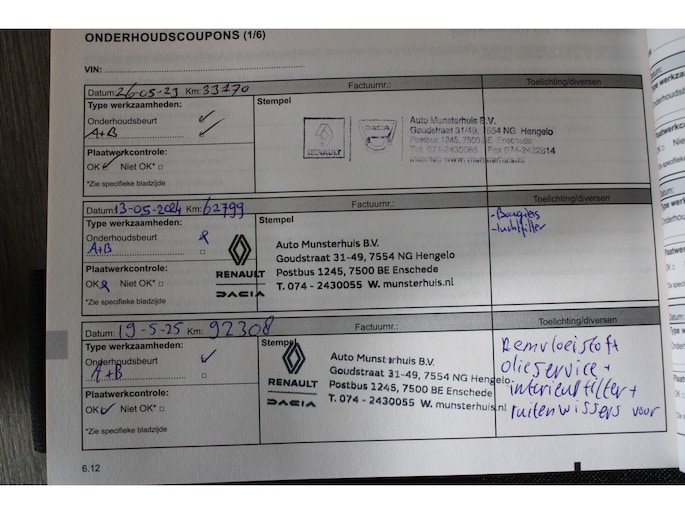 ONDERHOUDSCOUPONS (1/6)
VIN:
Datum: 26-05-23 Km: 33170 Factuurnr.: Toelichting/diversen
Type werkzaamheden: Stempel
Onderhoudsbeurt
A+B
Plaatwerkcontrole:
OK Niet OK*
*Zie specifieke bladzijde
RENAULT DACIA
Auto Munsterhuis B.V.
Goudstraat 31/49, 7554 NG Hengelo
Postbus 1245, 7500 BE Enschede
Tel. 074-2430055 Fax 074-2422814
Internet www.munsterhuis.nl
Datum: 13-05-2024 Km: 62799 Factuurnr.: Toelichting/diversen
Type werkzaamheden: Stempel
Onderhoudsbeurt
A+B
Plaatwerkcontrole:
OK Niet OK*
*Zie specifieke bladzijde
RENAULT
DACIA
Auto Munsterhuis B.V.
Goudstraat 31-49, 7554 NG Hengelo
Postbus 1245, 7500 BE Enschede
T. 074 - 2430055 W. munsterhuis.nl
- Bougies
- luchtfilter
Datum: 19-5-25 Km: 92308 Factuurnr.: Toelichting/diversen
Type werkzaamheden: Stempel
Onderhoudsbeurt
A+B
Plaatwerkcontrole:
OK Niet OK*
*Zie specifieke bladzijde
RENAULT
DACIA
Auto Munsterhuis B.V.
Goudstraat 31-49, 7554 NG Hengelo
Postbus 1245, 7500 BE Enschede
T. 074 - 2430055 W. munsterhuis.nl
Remvloeistoft
olieservice+
interieurfilter+
ruitenwissers voor
6.12